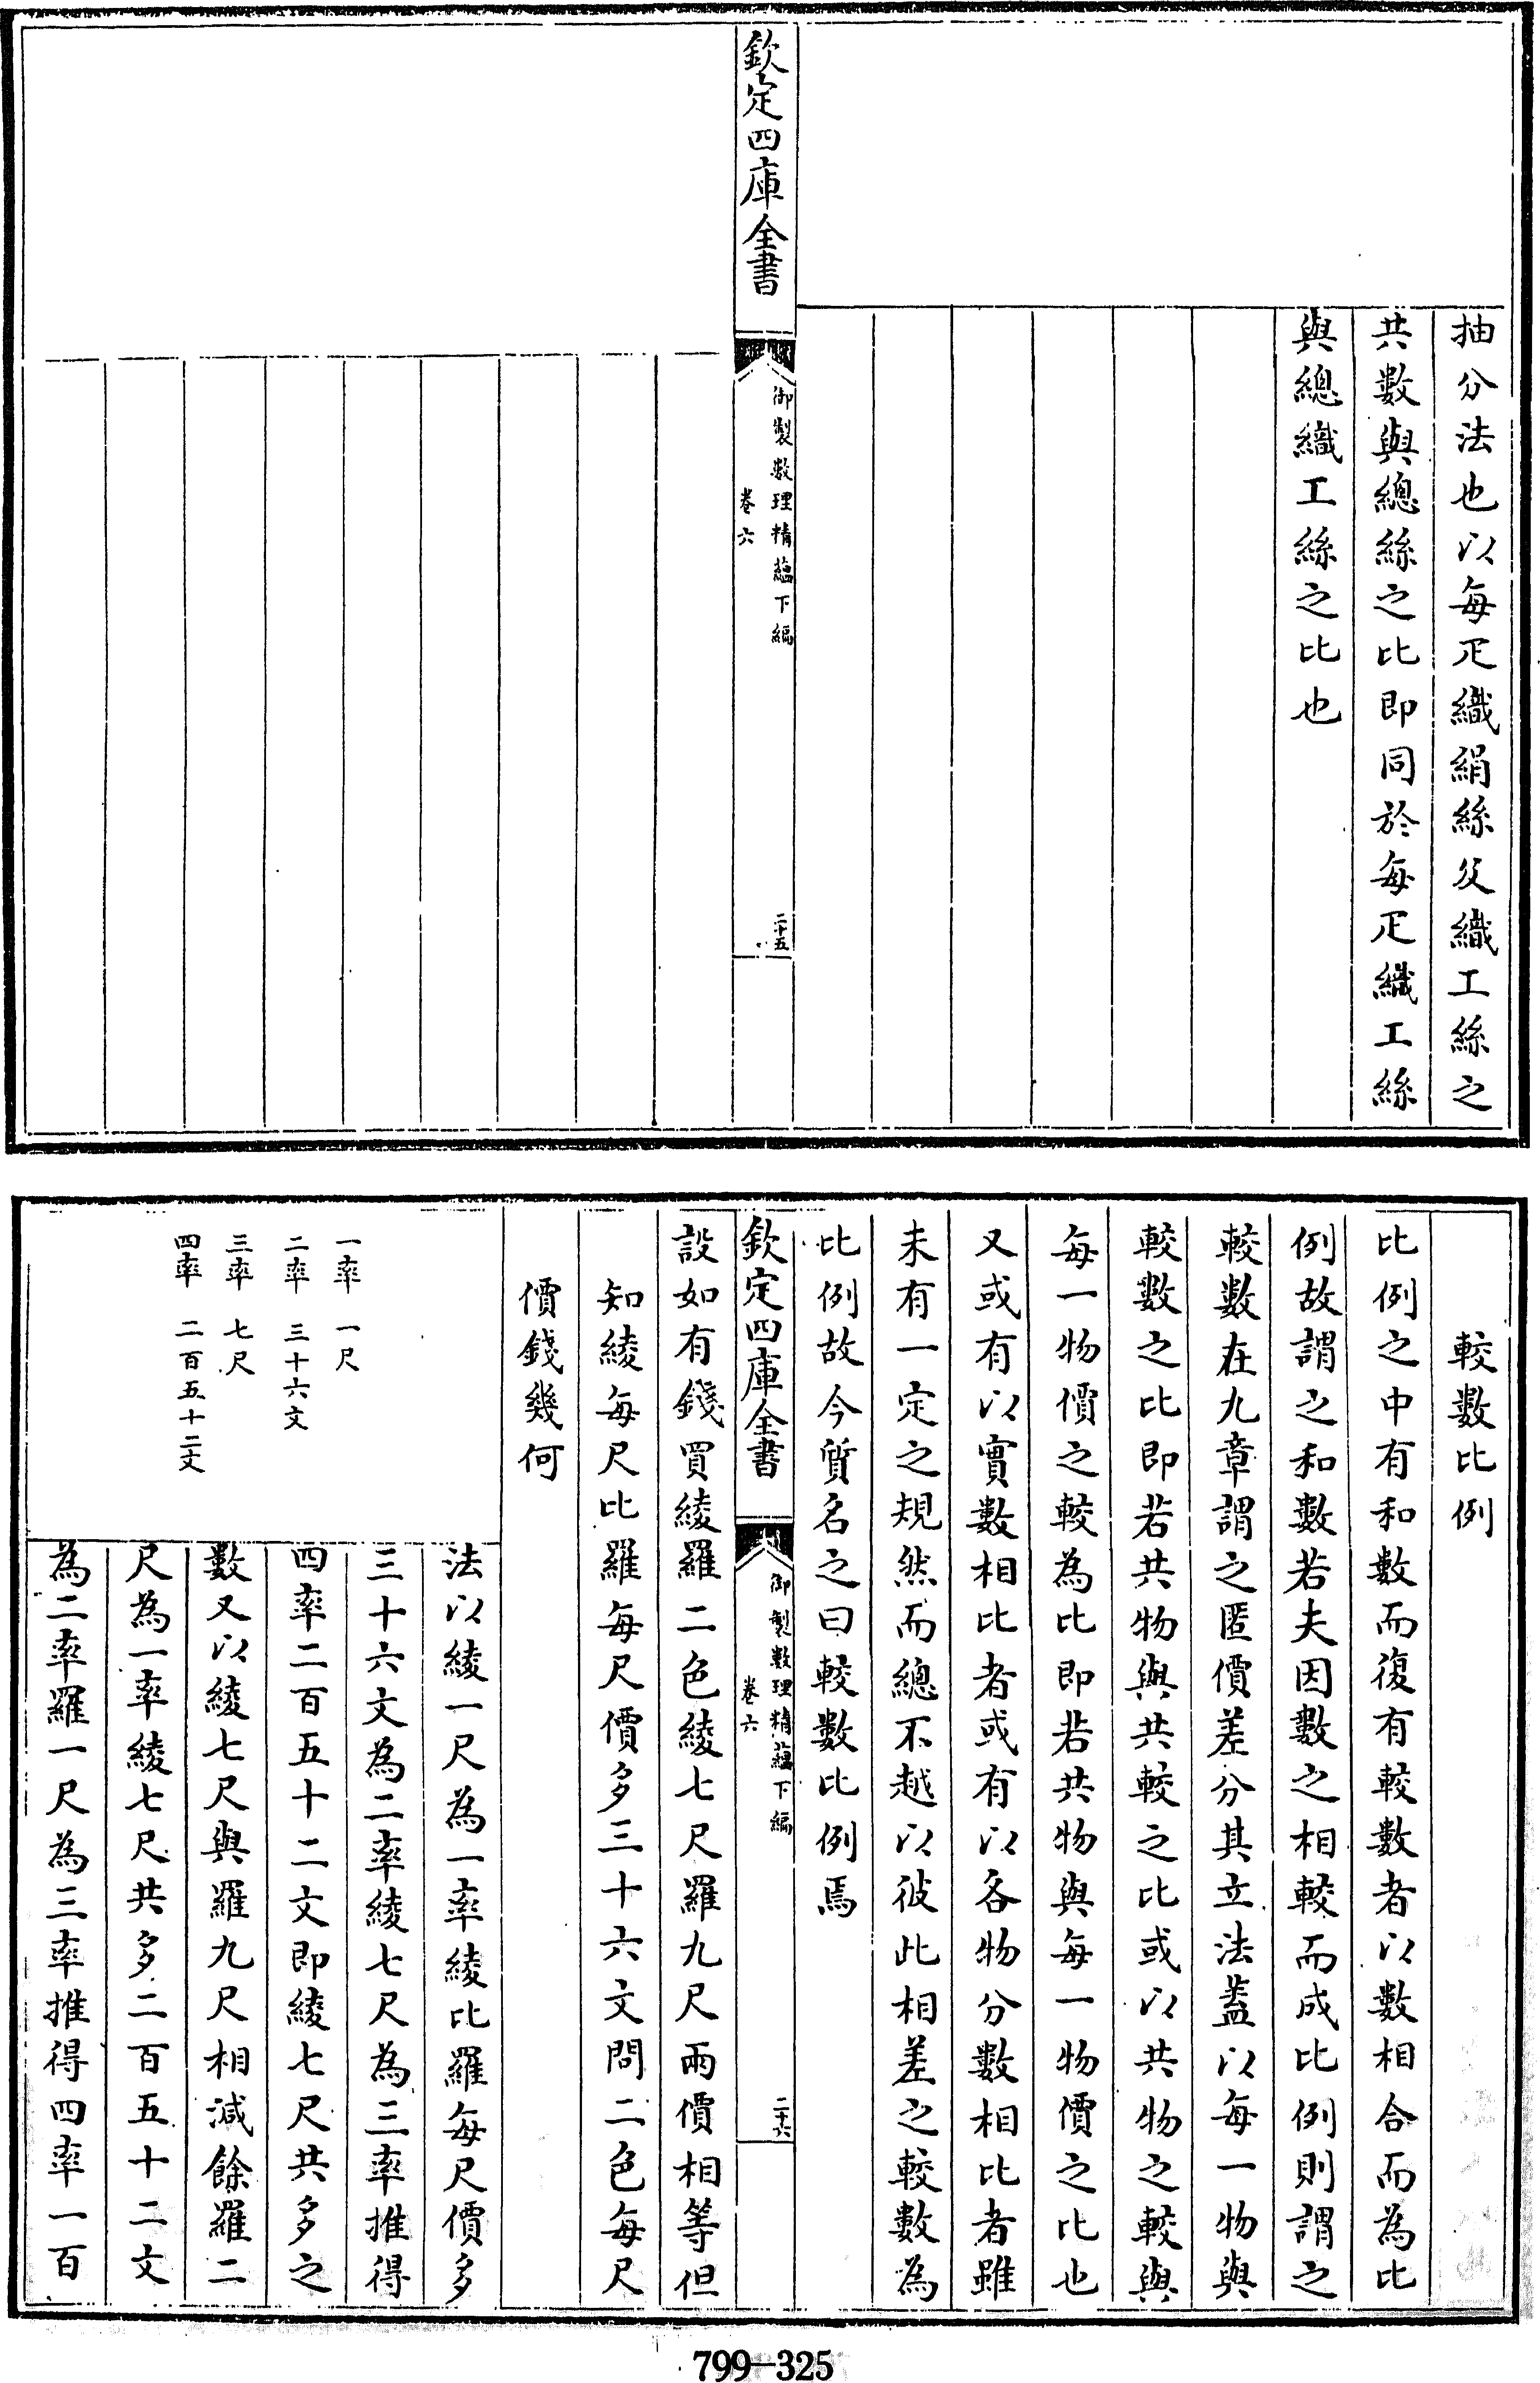 抽分法也以每疋織絹絲及織工絲之
共數與總絲之比即同於每疋織工絲
與總織工絲之比也
欽定四庫全書
御製數理精蘊下編
卷六
二十五
較數比例
比例之中有和數而復有較數者以數相合而為比
例故謂之和數若夫因數之相較而成比例則謂之
較數在九章謂之匿價差分其立法葢以每一物與
較數之比即若共物與共較之比或以共物之較與
每一物價之較為比即若共物與每一物價之比也
又或有以實數相比者或有以各物分數相比者雖
未有一定之規然而總不越以彼此相差之較數為
比例故今質名之曰較數比例焉
欽定四庫全書
御製數理精蘊下編
卷六
二十六
設如有錢買綾羅二色綾七尺羅九尺兩價相等但
知綾每尺比羅每尺價多三十六文問二色每尺
價錢幾何
一率 一尺
二率 三十六文
三率 七尺
四率 二百五十二文
法以綾一尺為一率綾比羅每尺價多
三十六文為二率綾七尺為三率推得
四率二百五十二文即綾七尺共多之
數又以綾七尺與羅九尺相減餘羅二
尺為一率綾七尺共多二百五十二文
為二率羅一尺為三率推得四率一百
799-325